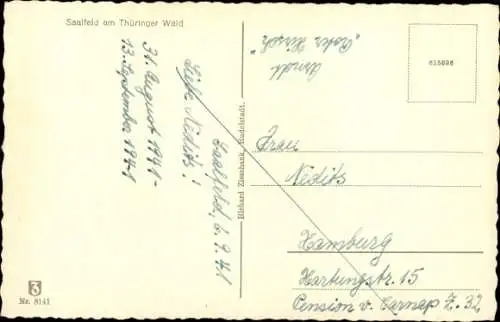 Saalfeld am Thüringer Wald
31. August 1941 -
13. September 1941
Liebe Nedits!
Saalfeld, 6.9.41
Arndt
"Roter Hirsch"
615098
Richard Zieschank, Rudolstadt.
Frau
Nedits
Hamburg
Hartungstr. 15
Pension v. Carnap Z. 32
3
Nr. 8141